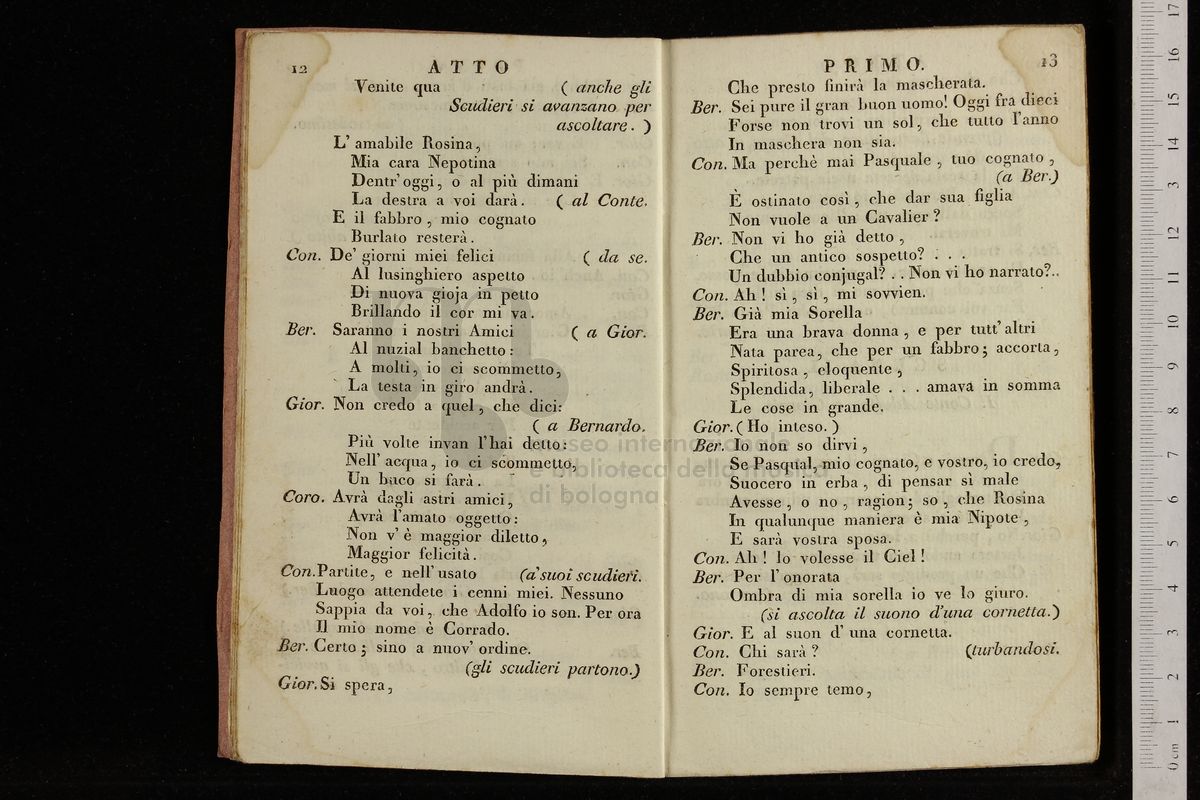 12 ATTO
Venite qua ( anche gli
Scudieri si avanzano per
ascoltare. )
L' amabile Rosina,
Mia cara Nepotina
Dentr' oggi, o al più dimani
La destra a voi darà. ( al Conte.
E il fabbro, mio cognato
Burlato resterà.
Con. De' giorni miei felici ( da se.
Al lusinghiero aspetto
Di nuova gioja in petto
Brillando il cor mi va.
Ber. Saranno i nostri Amici ( a Gior.
Al nuzial banchetto:
A molti, io ci scommetto,
La testa in giro andrà.
Gior. Non credo a quel, che dici:
( a Bernardo.
Più volte invan l'hai detto:
Nell' acqua, io ci scommetto,
Un buco si farà.
Coro. Avrà dagli astri amici,
Avrà l'amato oggetto:
Non v' è maggior diletto,
Maggior felicità.
Con. Partite, e nell' usato (a' suoi scudieri.
Luogo attendete i cenni miei. Nessuno
Sappia da voi, che Adolfo io son. Per ora
Il mio nome è Corrado.
Ber. Certo; sino a nuov' ordine.
(gli scudieri partono.)
Gior. Si spera,
PRIMO. 13
Che presto finirà la mascherata.
Ber. Sei pure il gran buon uomo! Oggi fra dieci
Forse non trovi un sol, che tutto l'anno
In maschera non sia.
Con. Ma perchè mai Pasquale, tuo cognato,
(a Ber.)
È ostinato così, che dar sua figlia
Non vuole a un Cavalier?
Ber. Non vi ho già detto,
Che un antico sospetto? . . .
Un dubbio conjugal? . . Non vi ho narrato?..
Con. Ah! sì, sì, mi sovvien.
Ber. Già mia Sorella
Era una brava donna, e per tutt' altri
Nata parea, che per un fabbro; accorta,
Spiritosa, eloquente,
Splendida, liberale . . . amava in somma
Le cose in grande.
Gior. ( Ho inteso. )
Ber. Io non so dirvi,
Se Pasqual, mio cognato, e vostro, io credo,
Suocero in erba, di pensar sì male
Avesse, o no, ragion; so, che Rosina
In qualunque maniera è mia Nipote,
E sarà vostra sposa.
Con. Ah! lo volesse il Ciel!
Ber. Per l' onorata
Ombra di mia sorella io ve lo giuro.
(si ascolta il suono d'una cornetta.)
Gior. E al suon d' una cornetta.
Con. Chi sarà? (turbandosi.
Ber. Forestieri.
Con. Io sempre temo,
museo internazionale
e biblioteca della musica
di bologna
0 cm 1 2 3 4 5 6 7 8 9 10 11 12 13 14 15 16 17